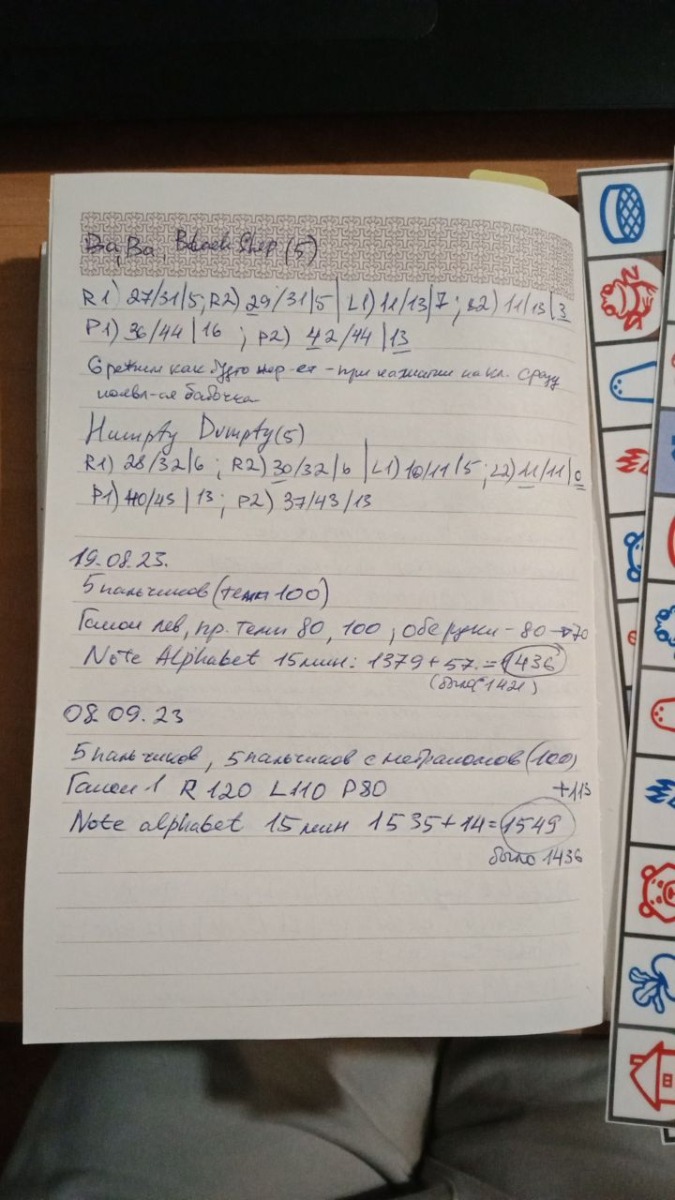 Ba, Ba, Black Shep (5)
R1) 27/31|5; R2) 29/31|5 | L1) 11/13|7; L2) 11/13|3
P1) 36/44|16 ; P2) 42/44|13
6 режим как будто - при нажатии на кл. сразу
появл-ся бабочка
Humpty Dumpty (5)
R1) 28/32|6 ; R2) 30/32|6 | L1) 10/11|5 ; L2) 11/11|0
P1) 40/45|13 ; P2) 37/43/13
19.08.23.
5 пальчиков (темп 100)
Гамон лев, пр. темп 80, 100 ; обе руки - 80 → 70
Note Alphabet 15 мин: 1379 + 57 = 1436
(было 1421)
08.09.23
5 пальчиков, 5 пальчиков с метрономом (100)
Гамон 1 R 120 L110 P80
+113
Note alphabet 15 мин 1535+14=1549
было 1436